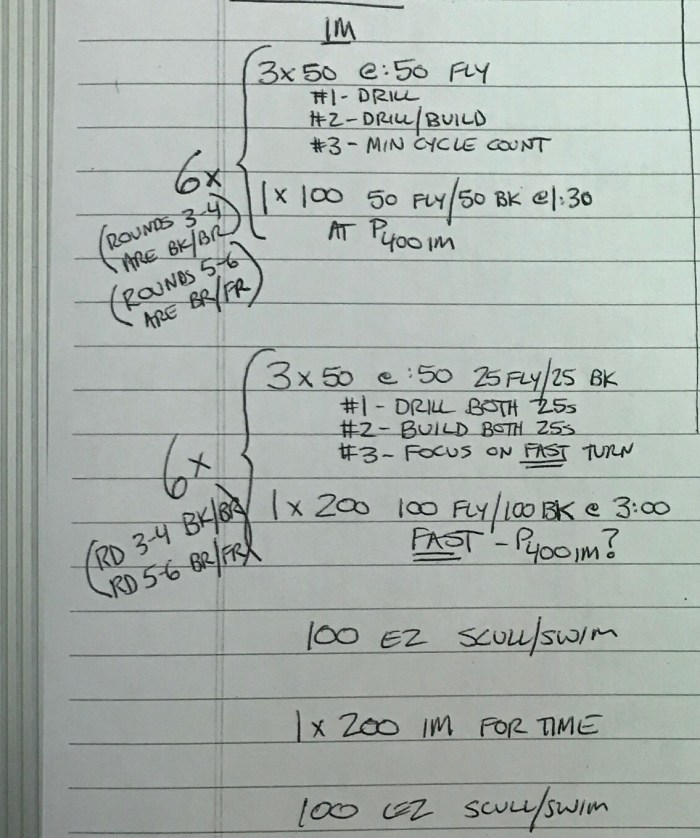 IM
3x50 @:50 FLY
#1- DRILL
#2- DRILL/BUILD
#3- MIN CYCLE COUNT
6x
1x 100 50 FLY/50 BK @1:30
AT P400IM
(ROUNDS 3-4
ARE BK/BR)
(ROUNDS 5-6
ARE BR/FR)
3x50 @ :50 25 FLY/25 BK
#1- DRILL BOTH 25s
#2- BUILD BOTH 25s
#3- FOCUS ON FAST TURN
6x
1x 200 100 FLY/100 BK @ 3:00
FAST - P400IM?
(RD 3-4 BK/BR
RD 5-6 BR/FR)
100 EZ SCULL/SWIM
1x 200 IM FOR TIME
100 EZ SCULL/SWIM